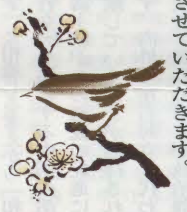 させていただきます